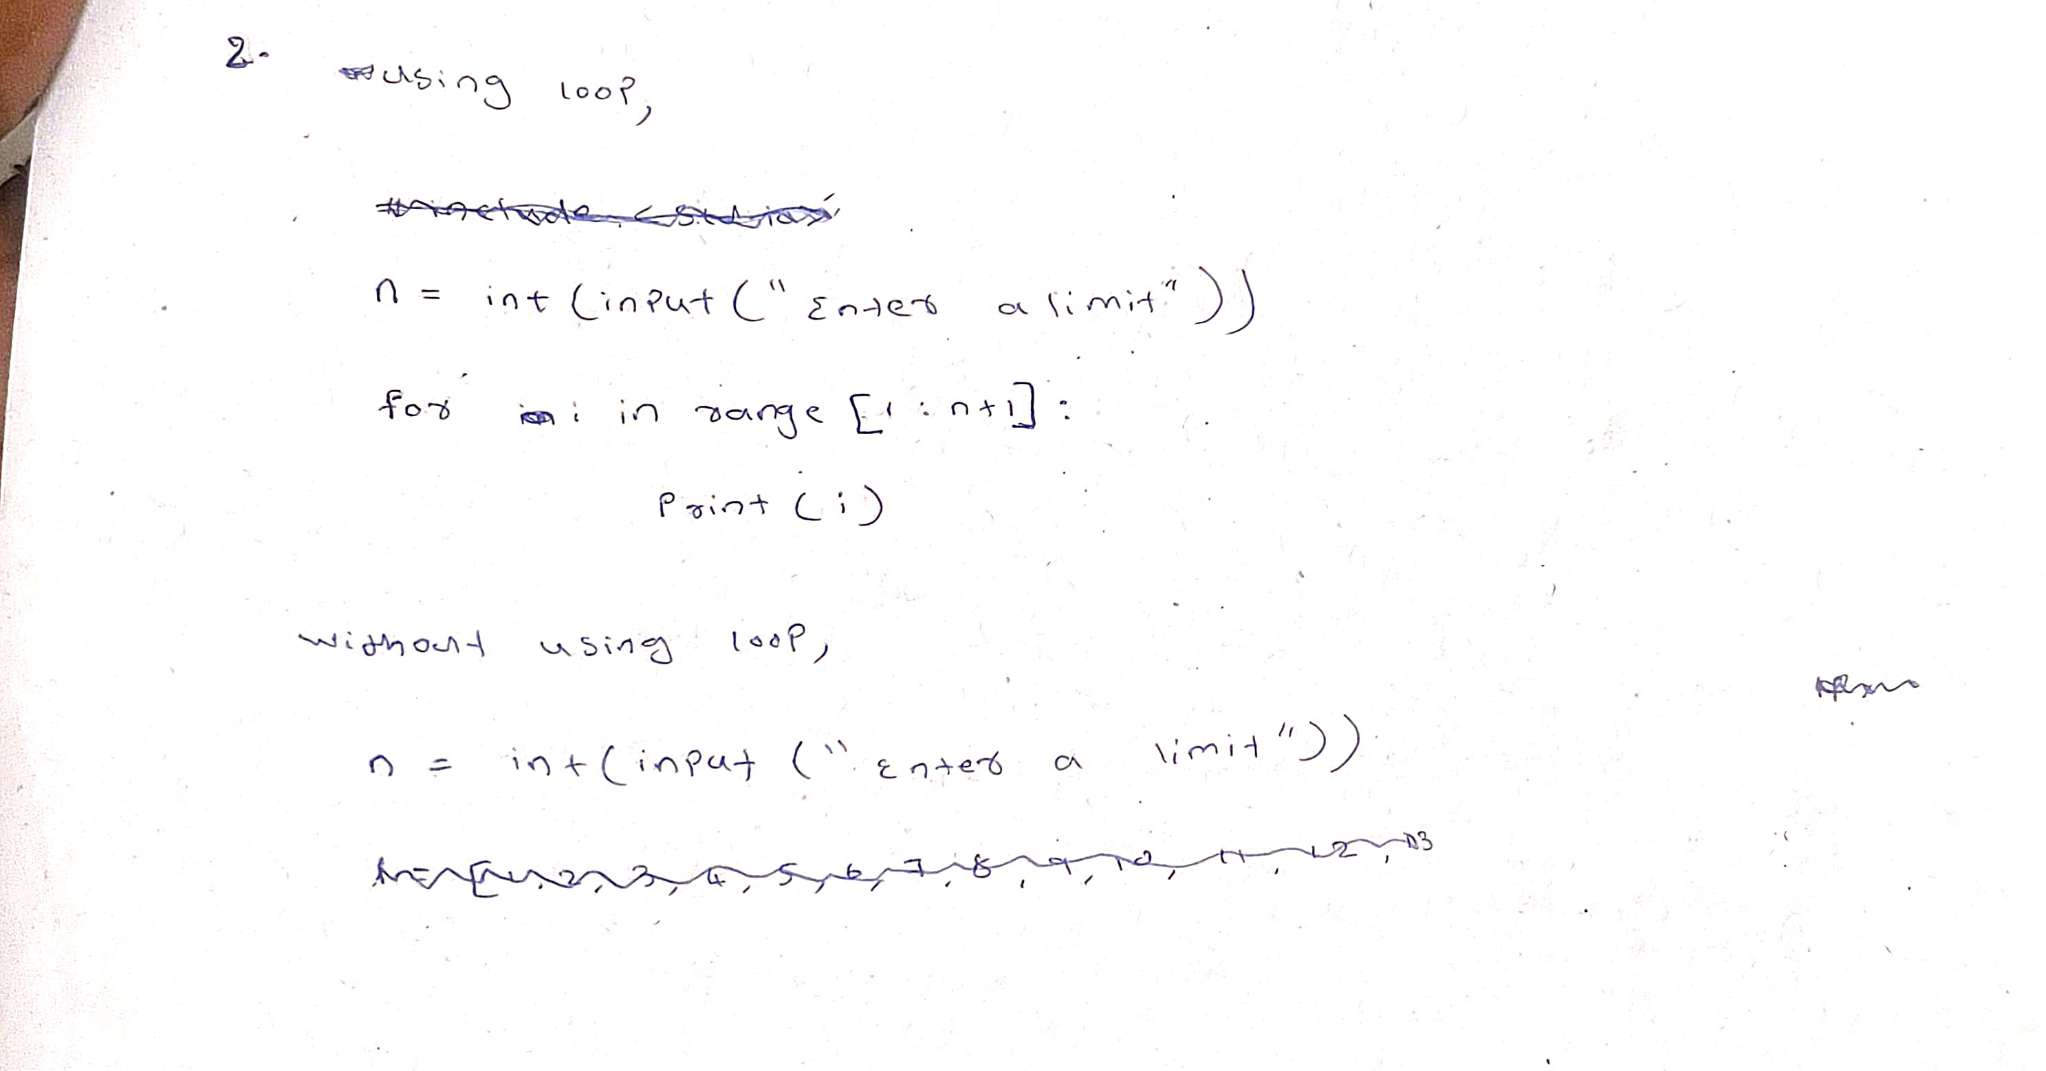 2.
using loop,
n = int (input (" Enter a limit"))
for i in range [1 : n+1] :
Print (i)
without using loop,
n = int (input (" Enter a limit"))